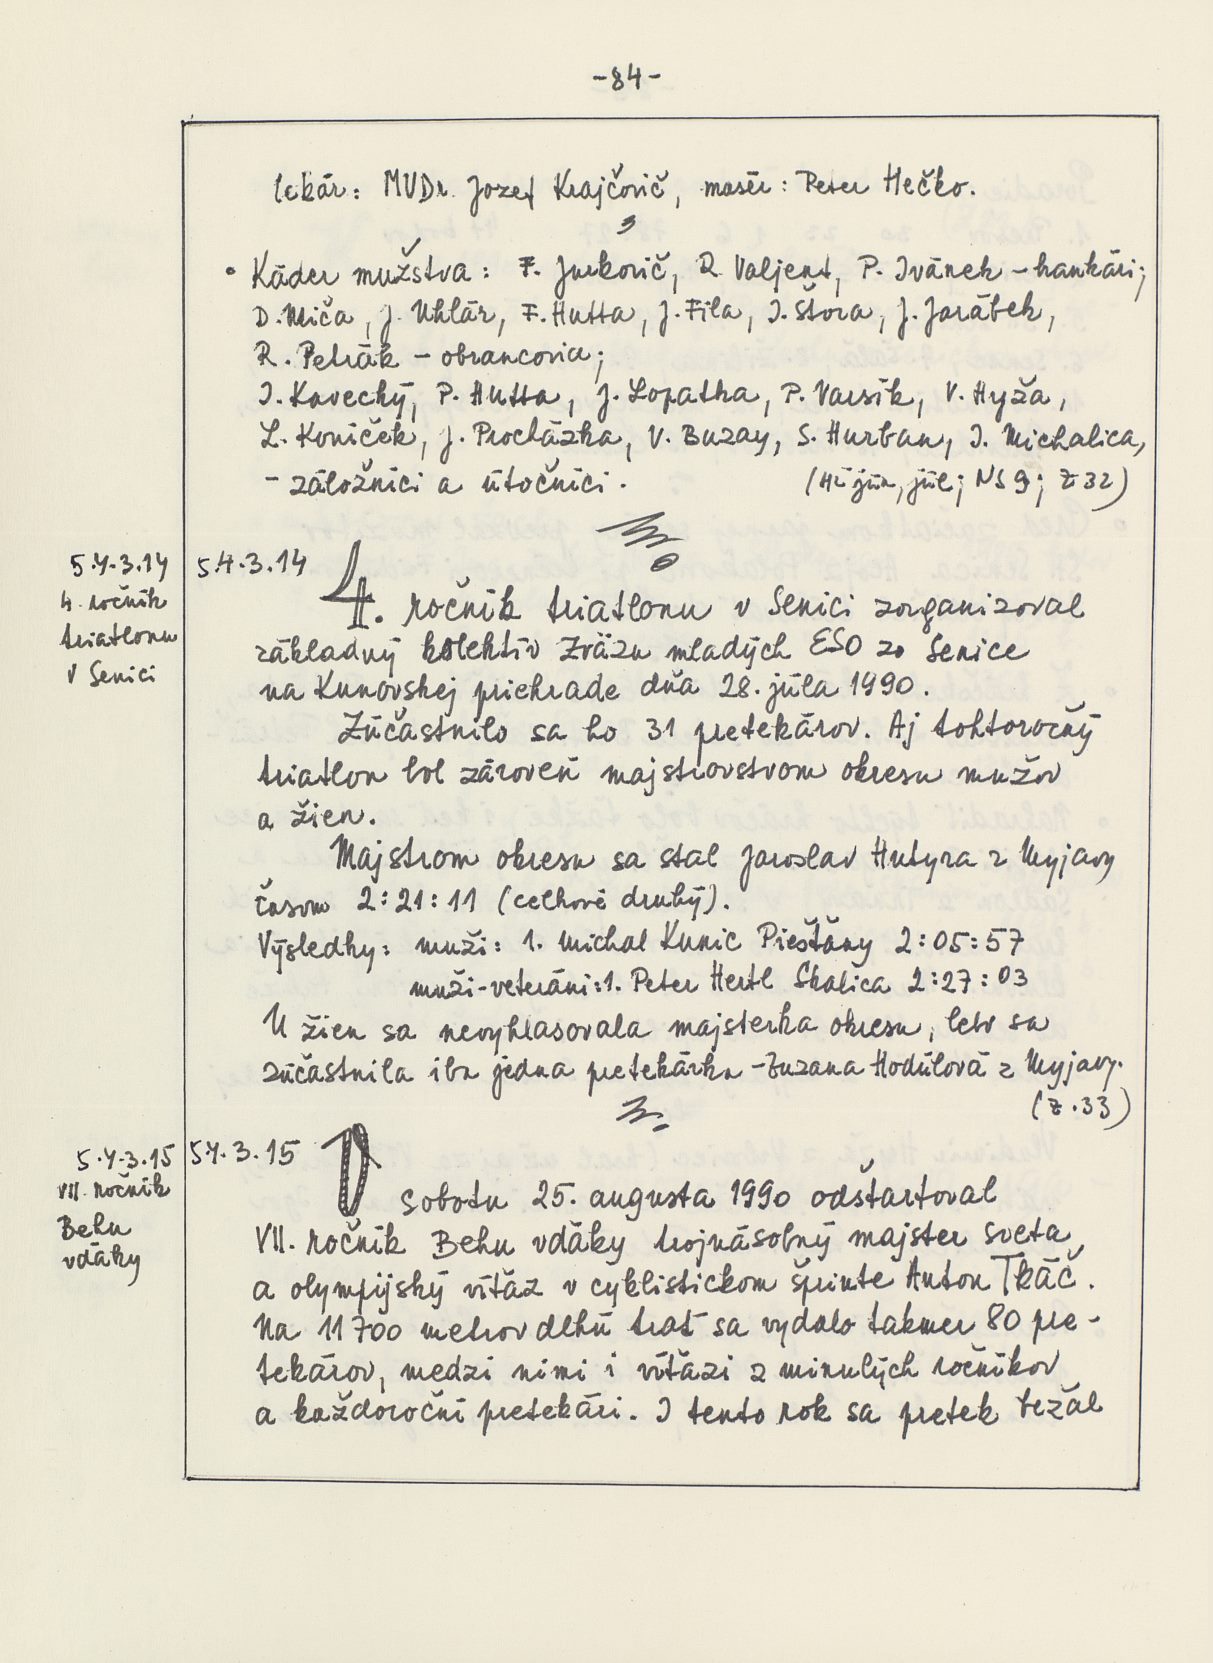 -84-
lekár: MVDr. Jozef Krajčovič, masér: Peter Hečko.
• Káder mužstva: F. Jurkovič, R. Valjent, P. Ivánek - brankári;
D. Miča, J. Uhlár, F. Hutta, J. Fila, I. Štora, J. Jarábek,
R. Petrák - obrancovia;
I. Kovecký, P. Hutta, J. Lopatka, P. Varsík, V. Hyža,
L. Koníček, J. Procházka, V. Buzay, S. Hurban, I. Michalica,
- záložníci a útočníci.
(HÚ jún, júl; NS 9; Z 32)
5.4.3.14
4. ročník
triatlonu
v Senici
5.4.3.14
4. ročník triatlonu v Senici zorganizoval
základný kolektív Zväzu mladých ESO zo Senice
na Kunovskej priehrade dňa 28. júla 1990.
Zúčastnilo sa ho 31 pretekárov. Aj tohtoročný
triatlon bol zároveň majstrovstvom okresu mužov
a žien.
Majstrom okresu sa stal Jaroslav Hutyra z Myjavy
časom 2:21:11 (celkové druhý).
Výsledky: muži: 1. Michal Kunic Piešťany 2:05:57
muži-veteráni: 1. Peter Hertl Skalica 2:27:03
U žien sa nevyhlasovala majsterka okresu, lebo sa
zúčastnila iba jedna pretekárka - Zuzana Hodúlová z Myjavy.
(Z.33)
5.4.3.15
VII. ročník
Behu
vďaky
5.4.3.15
V sobotu 25. augusta 1990 odštartoval
VII. ročník Behu vďaky trojnásobný majster sveta
a olympijský víťaz v cyklistickom šprinte Anton Tkáč.
Na 11 700 metrov dlhú trať sa vydalo takmer 80 pre-
tekárov, medzi nimi i víťazi z minulých ročníkov
a každoroční pretekári. I tento rok sa pretek bežal